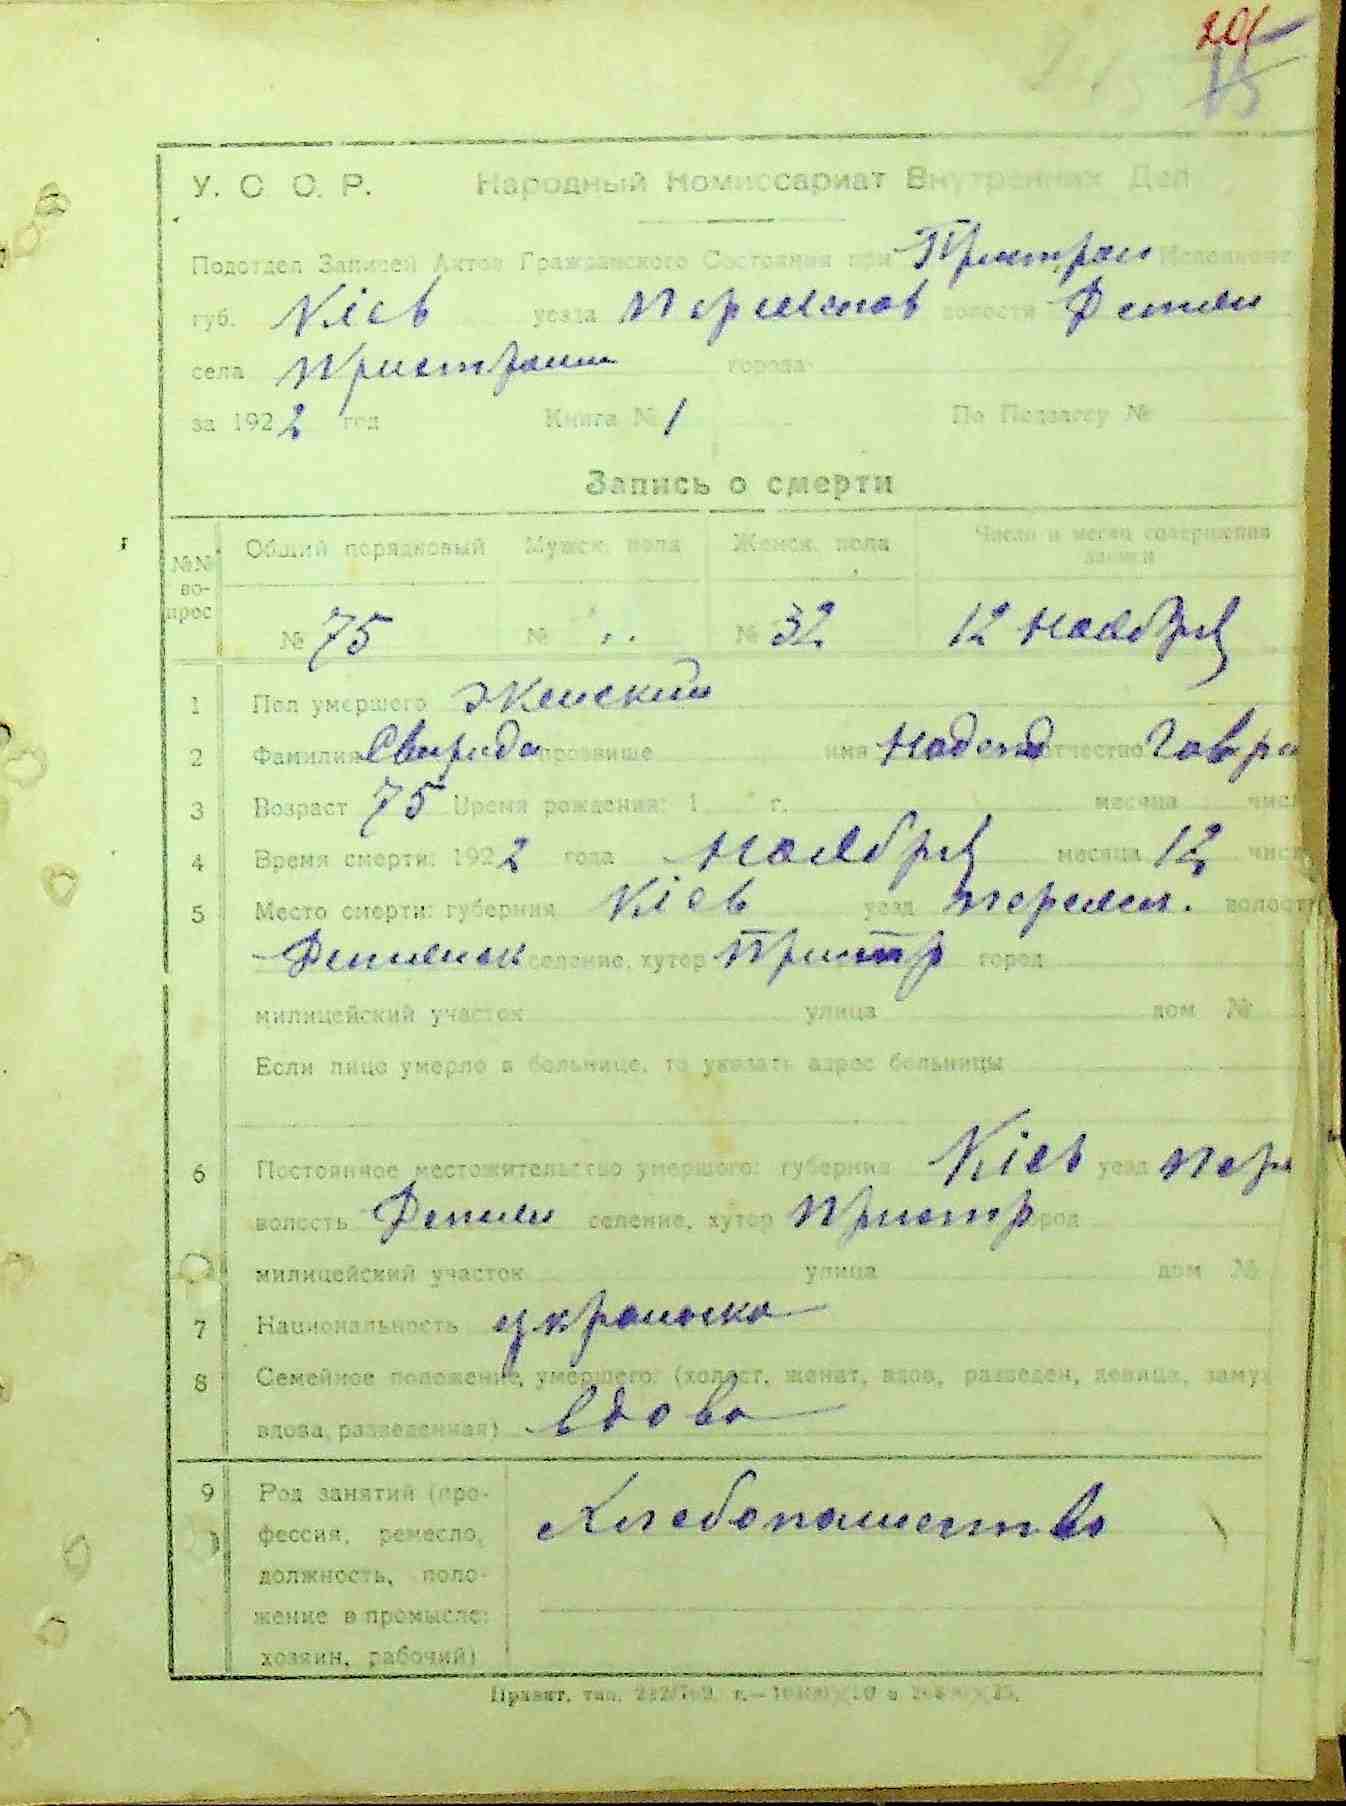 205
15
У. С. С. Р. Народный Комиссариат Внутренних Дел
Подотдел Записей Актов Гражданского Состояния при Пристром Исполкоме
губ. Кіев уезда Переяслав волости Демян
села Пристромы города
за 1922 год Книга № 1 По Подзагсу №
Запись о смерти
№№ вопрос Общий порядковый Мужск. пола Женск. пола Число и месяц совершения записи
№ 75 № „ № 32 12 Ноября
1 Пол умершего Женский
2 Фамилия Свирида прозвище имя отчество Гаври
3 Возраст 75 Время рождения: 1 г. месяца числ
4 Время смерти: 1922 года Ноября месяца 12 числ
5 Место смерти: губерния Кіев уезд Переяс. волость
селение, хутор Пристр город
милицейский участок улица дом №
Если лицо умерло в больнице, то указать адрес больницы
6 Постоянное местожительство умершего: губерния Кіев уезд Пере
волость Демян селение, хутор Пристр город
милицейский участок улица дом №
7 Национальность
8 Семейное положение умершего: (холост, женат, вдов, разведен, девица, замуж
вдова, разведенная) вдова
9 Род занятий (про-
фессия, ремесло,
должность, поло-
жение в промысле:
хозяин, рабочий)
Хлебопашество